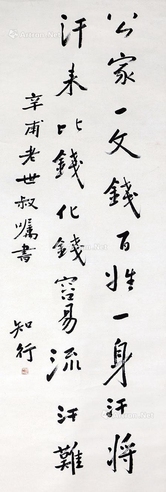 公家一文錢百姓一身汗將
汗来比錢化錢容易流汗難
辛甫老世叔嘱書
知行